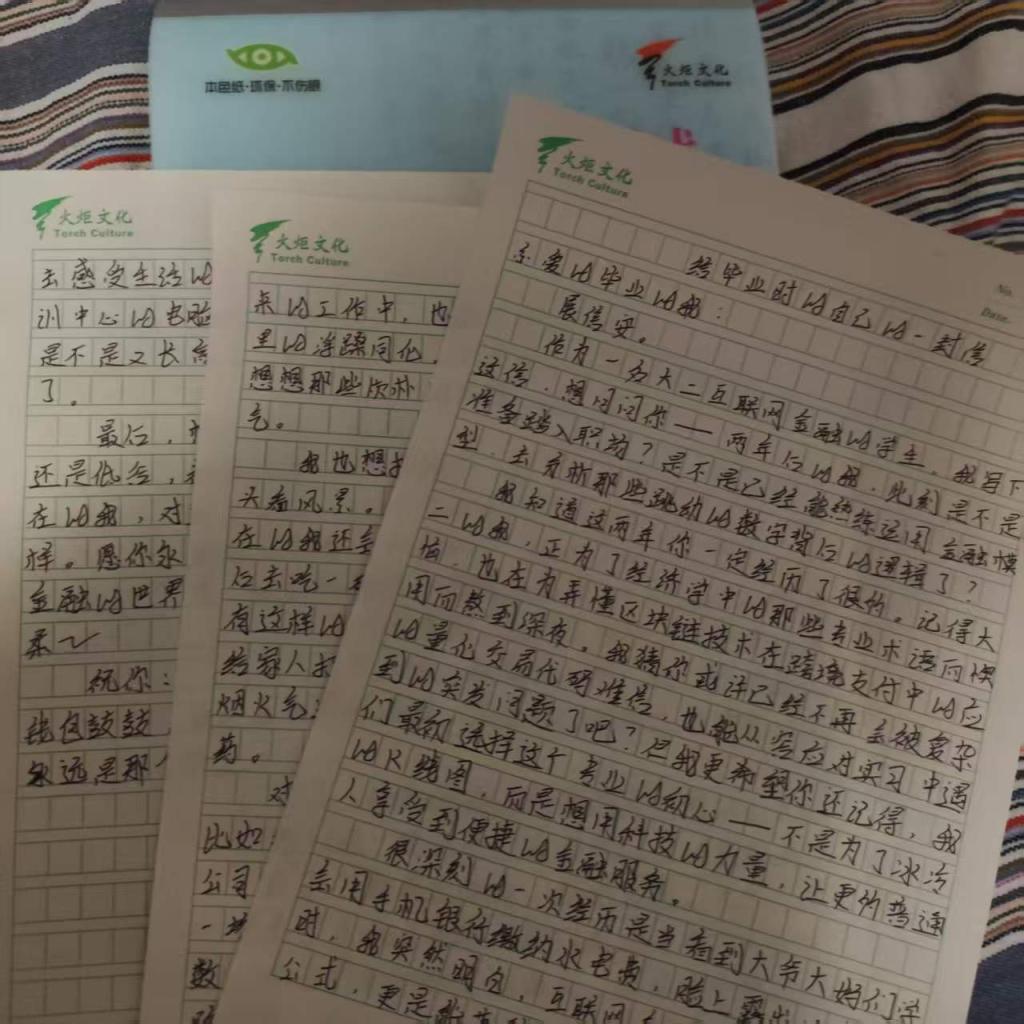 本色纸·环保·不伤眼
火炬文化
Torch Culture
火炬文化
Torch Culture
去感受生活的
训中心的电脑
是不是又长高
了。
最后,
还是低谷,
在的我,对
样。愿你永
金融的世界
柔~
祝你:
钱包鼓鼓
永远是那个
火炬文化
Torch Culture
来的工作中,也
里的浮躁同化,
想想那些质朴
气。
我也想
头看风景。
在的我还会
后去吃一
有这样的
给家人打
烟火气
药。
对
比如
公司
一块
数
火炬文化
Torch Culture
No.
Date.
给毕业时的自己的一封信
亲爱的毕业的我:
展信安。
作为一名大二互联网金融的学生,我写下
这信,想问问你——两年后的我,此刻是不是
准备踏入职场?是不是已经能熟练运用金融模
型,去分析那些跳动的数字背后的逻辑了?
我知道这两年你一定经历了很多。记得大
二的我,正为了经济学中的那些专业术语而懊
恼,也在为弄懂区块链技术在跨境支付中的应
用而熬到深夜。我猜你或许已经不再会被复杂
的量化交易代码难倒,也能从容应对实习中遇
到的突发问题了吧?但我更希望你还记得,我
们最初选择这个专业的初心——不是为了冰冷
的K线图,而是想用科技的力量,让更多普通
人享受到便捷的金融服务。
很深刻的一次经历是当看到大爷大妈们学
会用手机银行缴纳水电费,脸上露出
时,我突然明白,互联网
公式,更是能